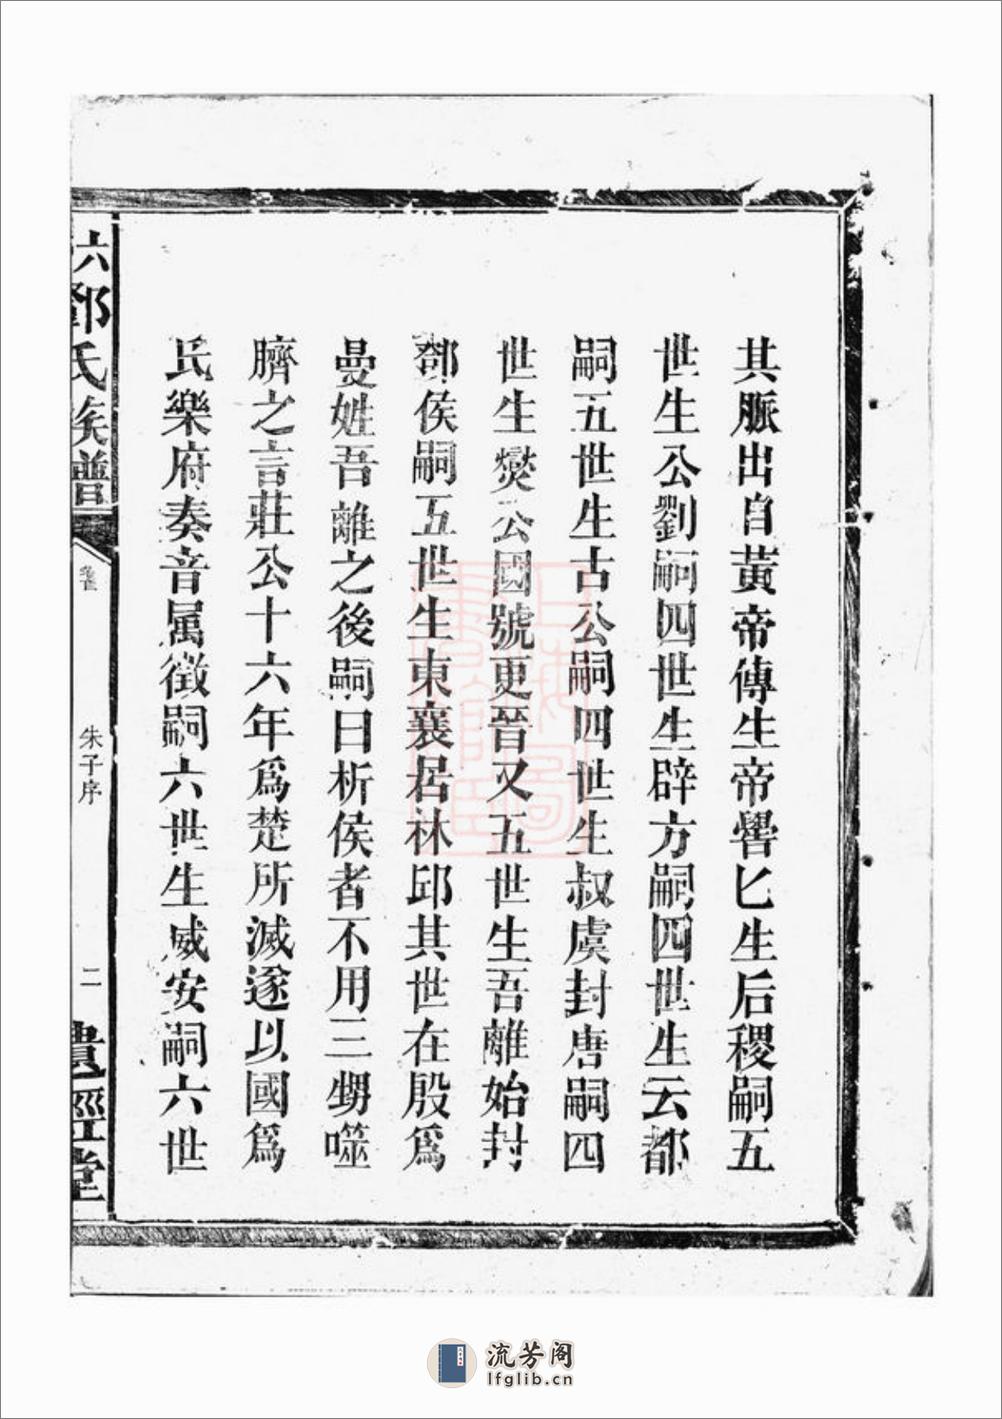 其脈出自黃帝傳生帝嚳匕生后稷嗣五
世生公劉嗣四世生辟方嗣四世生云都
嗣五世生古公嗣四世生叔虞封唐嗣四
世生爕公國號更晉又五世生吾離始封
鄧侯嗣五世生東襄居林邱其世在殷爲
曼姓吾離之後嗣曰析侯者不用三甥噬
臍之言莊公十六年爲楚所滅遂以國爲
氏樂府奏音属徵嗣六世生威安嗣六世
六鄧氏族譜
朱子序
二
遺經堂
流芳阁
lfglib.cn